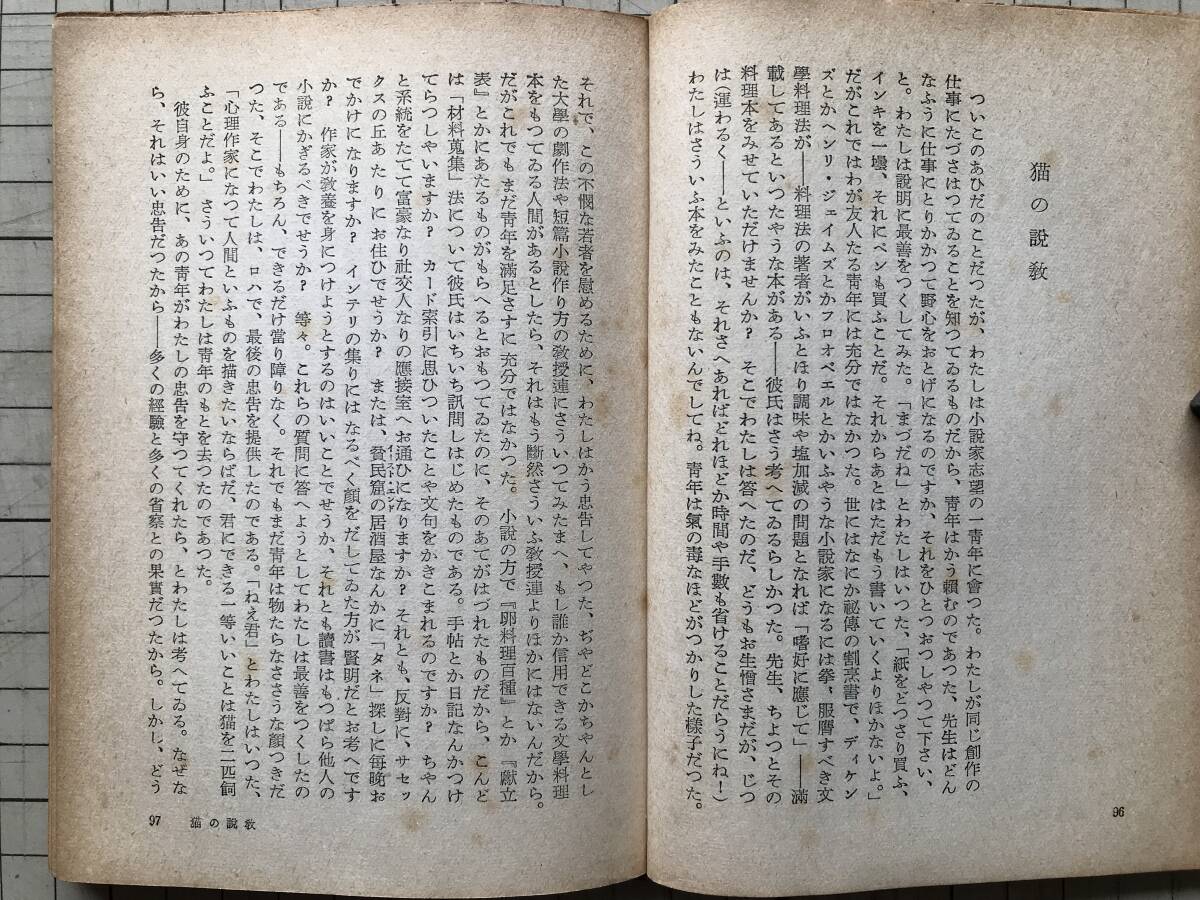 猫の說教
ついこのあひだのことだつたが、わたしは小說家志望の一靑年に會つた。わたしが同じ創作の
仕事にたづさはつてゐることを知つてゐるものだから、靑年はかう賴むのであつた、先生はどん
なふうに仕事にとりかかつて野心をおとげになるのですか、それをひとつおつしやつて下さい、
と。わたしは說明に最善をつくしてみた。「まづだね」とわたしはいつた、「紙をどつさり買ふ、
インキを一壜、それにペンも買ふことだ。それからあとはただもう書いていくよりほかないよ。」
だがこれではわが友人たる靑年には充分ではなかつた。世にはなにか祕傳の割烹書で、ディケン
ズとかヘンリ・ジェイムズとかフロオベエルとかいふやうな小說家になるには拳々服膺すべき文
學料理法が――料理法の著者がいふとほり調味や塩加減の問題となれば「嗜好に應じて」――滿
載してあるといつたやうな本がある――彼氏はさう考へてゐるらしかつた。先生、ちよつとその
料理本をみせていただけませんか？　そこでわたしは答へたのだ、どうもお生憎さまだが、じつ
は（運わるく――といふのは、それさへあればどれほどか時間や手數も省けることだらうにね！）
わたしはさういふ本をみたこともないんでしてね。靑年は氣の毒なほどがつかりした樣子だつた。
96
それで、この不憫な若者を慰めるために、わたしはかう忠告してやつた、ぢやどこかちやんとし
た大學の劇作法や短篇小說作り方の敎授連にさういつてみたまへ、もし誰か信用できる文學料理
本をもつてゐる人間があるとしたら、それはもう斷然さういふ敎授連よりほかにはないんだから。
だがこれでもまだ靑年を滿足さすに充分ではなかつた。小說の方で『卵料理百種』とか『獻立
表』とかにあたるものがもらへるとおもつてゐたのに、そのあてがはづれたものだから、こんど
は「材料蒐集」法について彼氏はいちいち訊問しはじめたものである。手帖とか日記なんかつけ
てらつしやいますか？　カード索引に思ひついたことや文句をかきこまれるのですか？　ちやん
と系統をたてて富豪なり社交人なりの應接室へお通ひになりますか？　それとも、反對に、サセッ
クスの丘あたりにお住ひでせうか？　または、貧民窟の居酒屋なんかに「タネ」探しに每晚お
イースト・エンド
でかけになりますか？　インテリの集りにはなるべく顏をだしてゐた方が賢明だとお考へです
か？　作家が敎養を身につけようとするのはいいことでせうか、それとも讀書はもつぱら他人の
小說にかぎるべきでせうか？　等々。これらの質問に答へようとしてわたしは最善をつくしたの
である――もちろん、できるだけ當り障りなく。それでもまだ靑年は物たらなささうな顏つきだ
つた、そこでわたしは、ロハで、最後の忠告を提供したのである。「ねえ君」とわたしはいつた、
「心理作家になつて人間といふものを描きたいならばだ、君にできる一等いいことは猫を二匹飼
ふことだよ。」さういつてわたしは靑年のもとを去つたのであつた。
彼自身のために、あの靑年がわたしの忠告を守つてくれたら、とわたしは考へてゐる。なぜな
ら、それはいい忠告だつたから――多くの經驗と多くの省察との果實だつたから。しかし、どう
97　猫の說敎